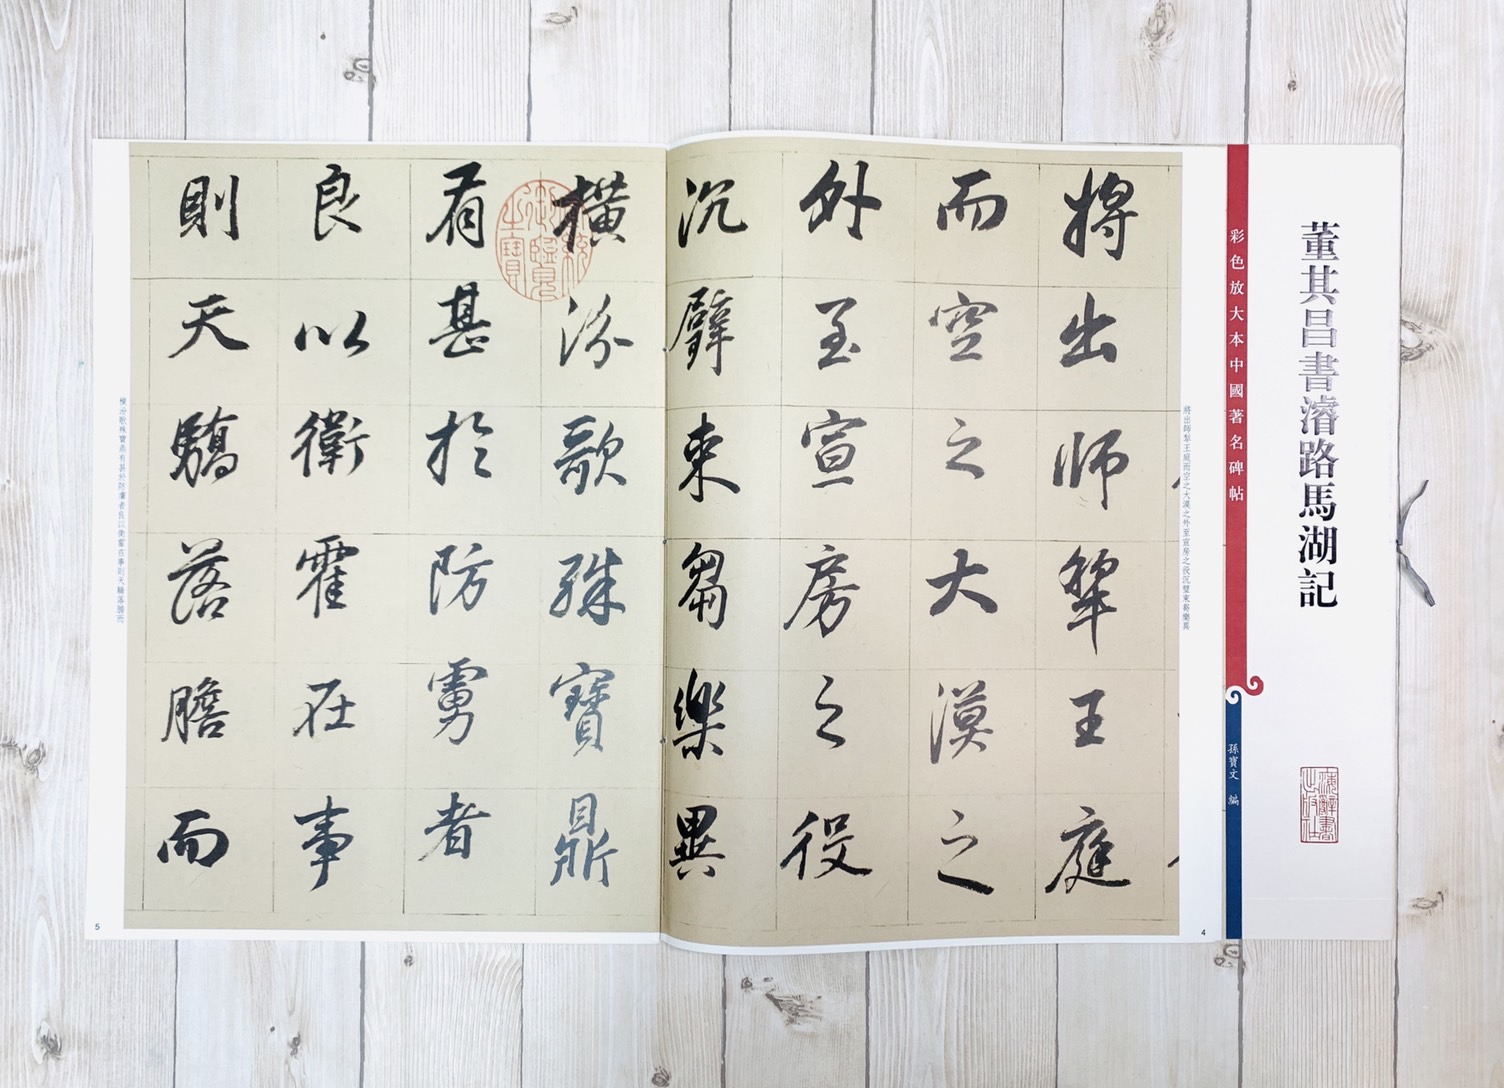 董其昌書濬路馬湖記
彩色放大本中國著名碑帖
孫寶文 編
將出師犁王庭而空之大漠之外至宣房之役沉璧束芻樂異
將出師犁王庭
而空之大漠之
外至宣房之役
沉璧束芻樂異
4
橫汾歌殊寶鼎
有甚於防虜者
良以衛霍在事
則天驕落膽而
宣統御覽之寶
橫汾歌殊寶鼎有甚於防虜者良以衛霍在事則天驕落膽而
5